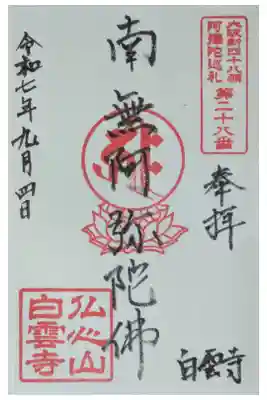 大阪新四十八願
阿彌陀巡礼
第二十八番
奉拝
白雲寺
南無阿弥陀佛
令和七年九月四日
仏心山
白雲寺